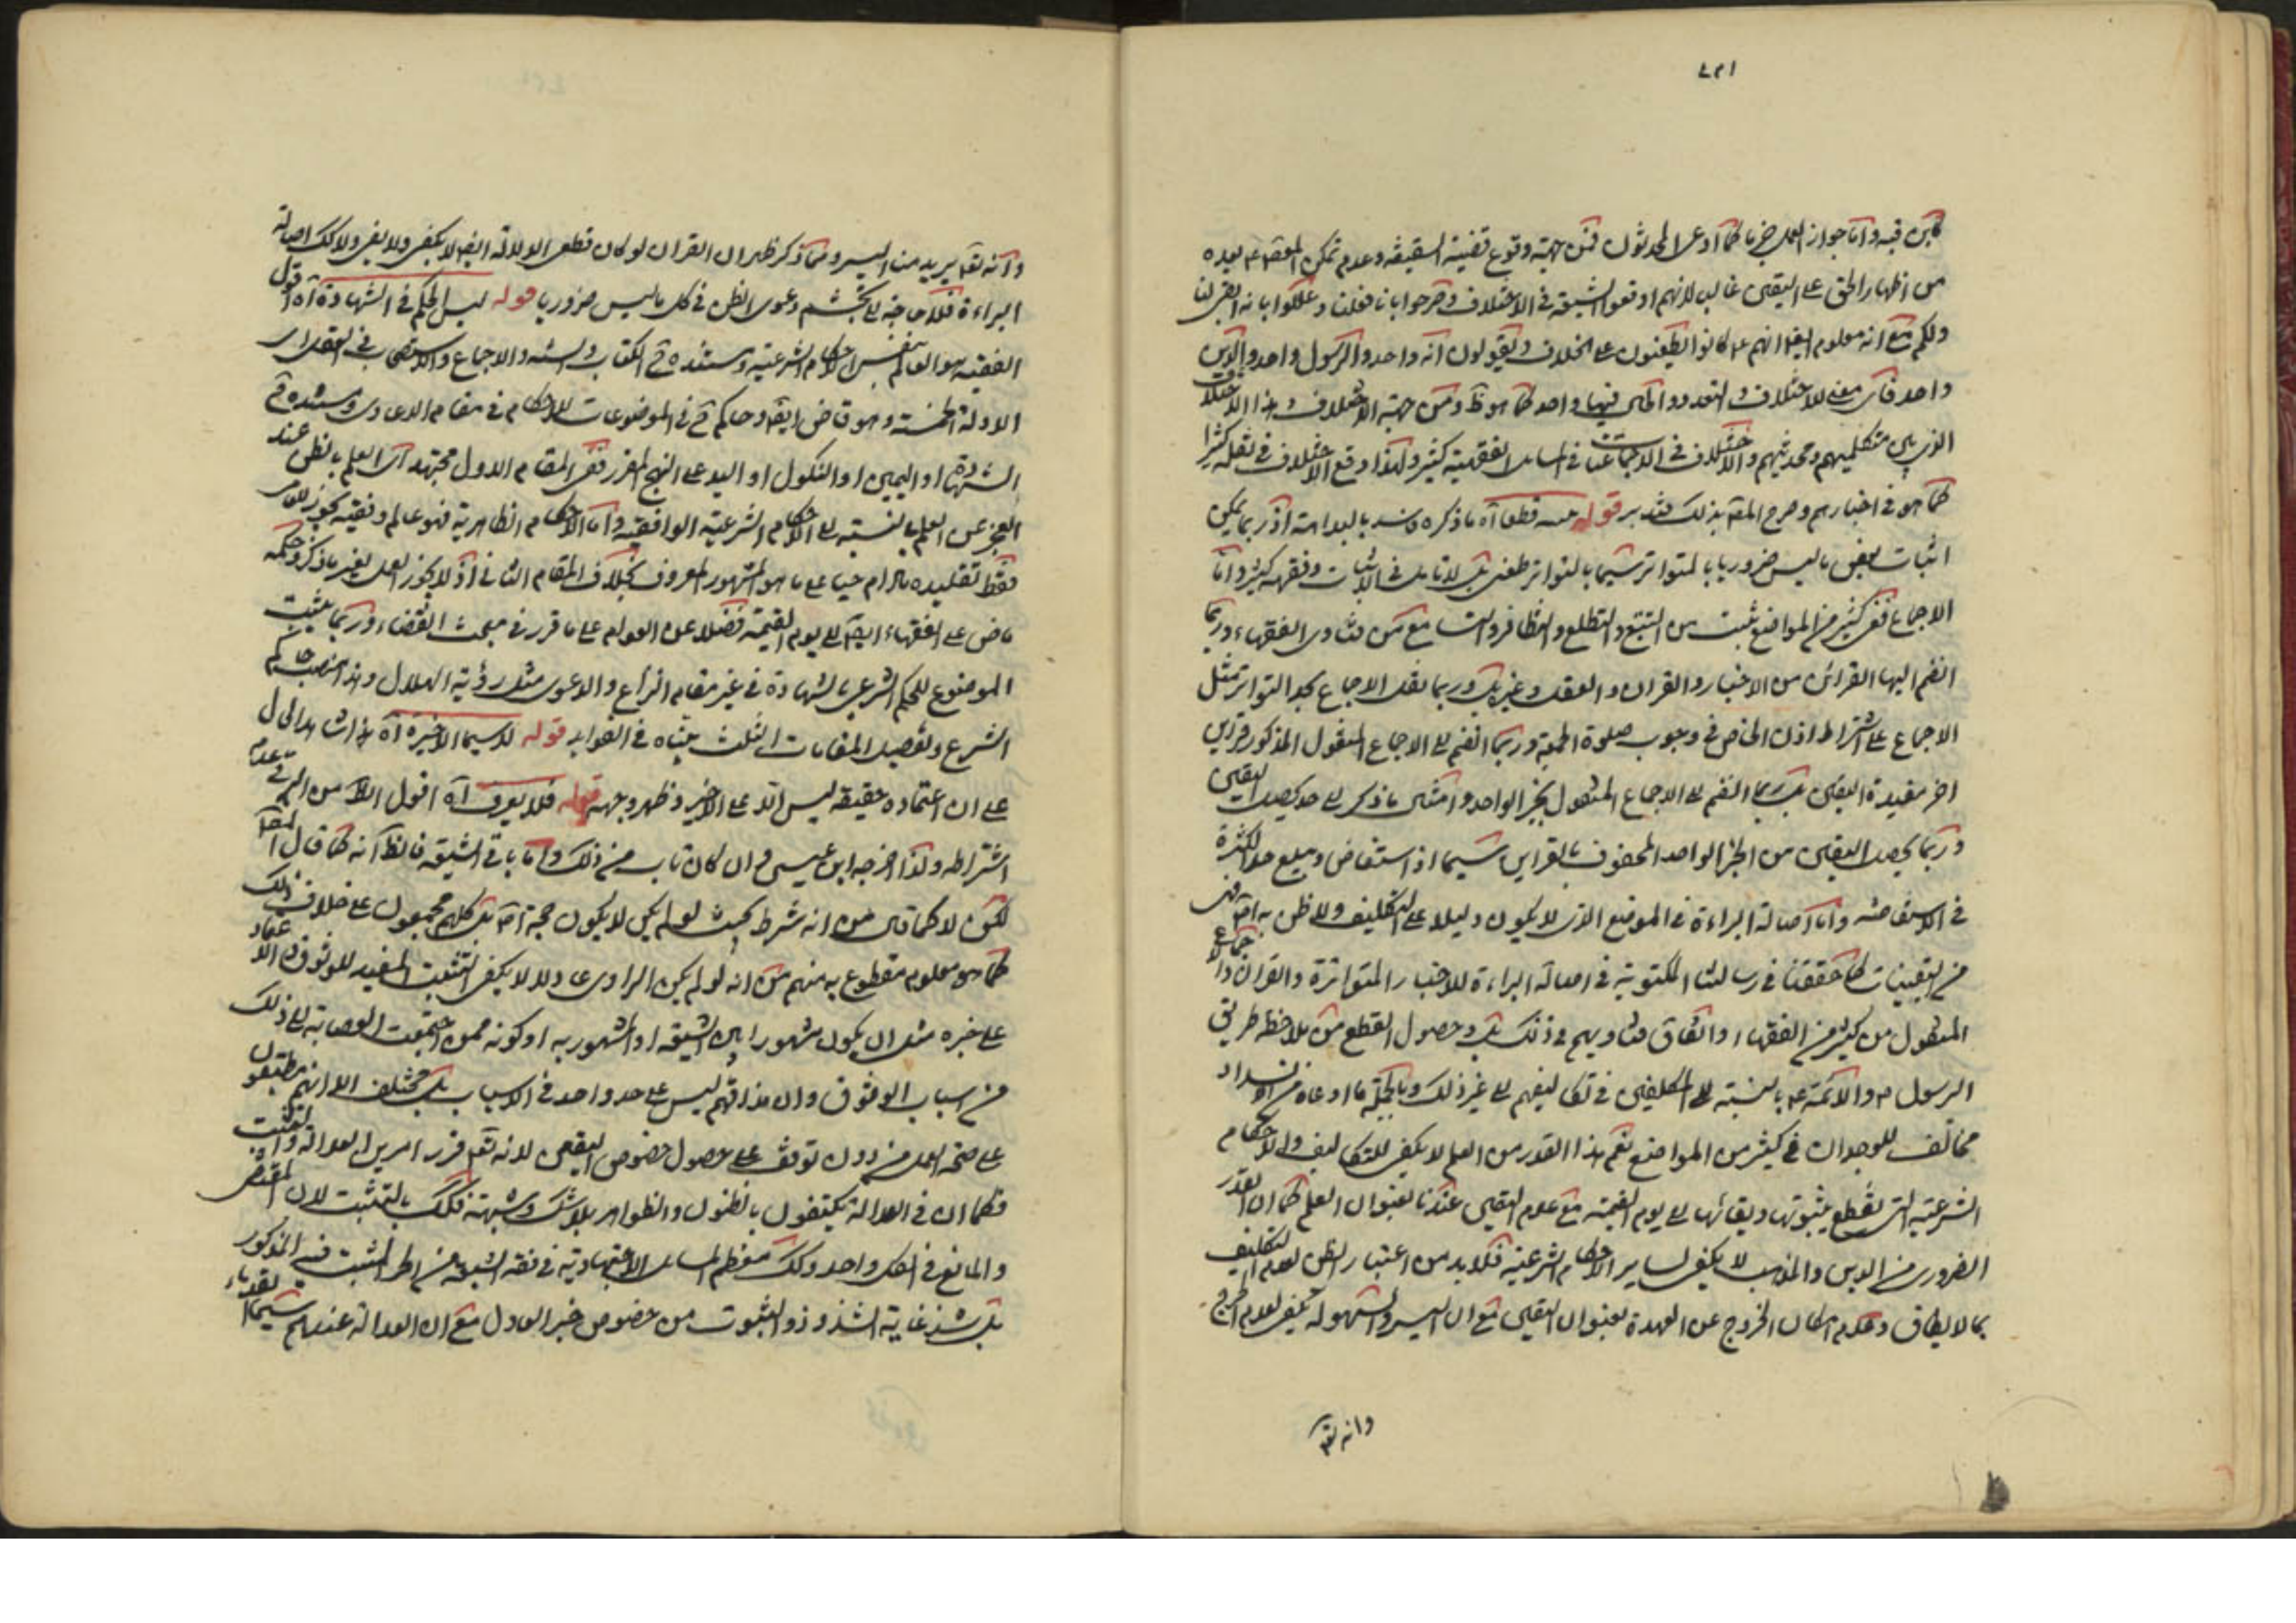 كثير فيه واما جواز العمل خبرنا كما ادعى المحدثون فمن جهة وقوع قضية السقيفة وعدم تمكن المعصوم بعده
من اظهار الحق على اليقين غالبا لانهم اوقعوا الشيعة في الاختلاف وصرحوا بانا فعلنا وعللوا بانه ابقى لنا
ولكم مع انه معلوم ايضا انهم ع كانوا يطعنون على الخلاف ويقولون انه واحد والرسول واحد والدين
واحد فاى معنى للاختلاف والتعدد والحق فيها واحد كما هو ظ ومن جهة الاختلاف وهذا الاختلاف
الذى بين متكلميهم ومحدثيهم والاختلاف في الاجماعات في المسائل الفقهية كثير ولهذا وقع الاختلاف في نقله كثيرا
كما هو في اخبارهم وصرح المقم بذلك فتدبر قوله قطعا آه ما ذكره فاسد بالبداهة اذ ربما يمكن
اثبات بعض ما ليس ضروريا بالمتواتر سيما بالتواتر
الاجماع ففي كثير من المواضع يثبت من التتبع والتطلع والتظافر والتسامع من فتاوى الفقهاء وربما
انضم اليها القرائن من الاخبار والقران والعقل وغير ذلك وربما نقل الاجماع بحد التواتر مثل
الاجماع على اشتراط اذن الخاص في وجوب صلوة الجمعة وربما انضم الى الاجماع المنقول المذكور قراين
اخر مفيدة اليقين بل ربما انضم الى الاجماع المنقول بخبر الواحد وامثال ما ذكر الى حد يحصل اليقين
وربما يحصل اليقين من الخبر الواحد المحفوف بالقراين سيما اذا استفاض وبلغ حد الكثرة
في الاستفاضة واما اصالة البراءة في الموضع الذى لا يكون دليلا على التكليف ولا ظن به
من اليقينيات كما حققنا في رسالتنا المكتوبة في اصالة البراءة للاخبار المتواترة والقران والاجماع
المنقول من كثير من الفقهاء واتفاق فتاويهم في ذلك بل وحصول القطع من ملاحظة طريق
الرسول ص والائمة ع بالنسبة الى المكلفين في تكاليفهم الى غير ذلك وبالجملة ما ادعاه من الانسداد
مخالف للوجدان في كثير من المواضع نعم هذا القدر من العلم لا يكفى للتكاليف والاحكام
الشرعية التى نقطع بثبوتها وبقائها الى يوم القيمة مع عدم اليقين عندنا بعنوان العلم كما ان القدر
الضرورى من الدين والمذهب لا يكفى لساير الاحكام الشرعية فلا بد من اعتبار الظن لعدم التكليف
بما لا يطاق وعدم امكان الخروج عن العهدة بعنوان اليقين مع ان اليسر والسهولة يكفى لعدم الحرج
وانه تعم
وانه تعم يريد منا اليسر ومما ذكر ظهر ان القران لو كان قطعى الدلالة ايضا لا يكفى ولا يفى ولا كك اصالة
البراءة فلا حاجة الى تجشم دعوى الظن في كل ما ليس ضروريا قوله ليس الحكم في الشهادة آه اقول
الفقيه هو العالم بنفس الاحكام الشرعية ومستنده في الكتاب والسنة والاجماع والاستصحاب
الادلة الخمسة وهو قاض ايضا وحاكم في الموضوعات للاحكام في مقام الدعاوى ومستنده في
الشهادة او اليمين او النكول او اليد على النهج المقرر ففى المقام الاول مجتهد اى العلم بالظن عند
العجز عن العلم بالنسبة الى الاحكام الشرعية الواقعية واما الاحكام الظاهرية فهو عالم وفقيه يجوز للعوام
فقط تقليده ما دام حيا على ما هو المشهور المعروف بخلاف المقام الثانى اذ لا يجوز العمل بغير ما ذكر وحكمه
ماض على الفقهاء ايضا الى يوم القيمة فضلا عن العوام على ما قرر في مبحث القضاء وربما يثبت
الموضوع للحكم الشرعى بالشهادة في غير مقام النزاع والدعوى مثل رؤية الهلال وهذا
الشرع وتفصيل المقامات الثلث بيناه في الفوايد قوله لا سيما الاخيرة آه
على ان اعتماده حقيقة ليس الا على الاخير وظهر وجهه قوله فلا يعرف آه اقول الا من البرقى عدم
اشتراطه ولذا اخرجه ابن عيسى وان كان تاب من ذلك واما باقى الشيعة فالظ انه كما قال المقم
لكن لا كما قال من انه شرط بحيث لو لم يكن لا يكون حجة اصلا بل كلهم مجمعون على خلاف ذلك
كما هو معلوم مقطوع به منهم من انه لو لم يكن الراوى عادلا لا يكفى التثبت المفيد للوثوق والاعتماد
على خبره مثل ان يكون مشهورا بين الشيعة او المشهور به او كونه ممن اجتمعت العصابة الى ذلك
من اسباب الوثوق وان مذاقهم ليس على حد واحد في الاسباب بل مختلف الا انهم مطبقون
على صحة العمل من دون توقف على حصول خصوص اليقين لانه تعم قرر امرين العدالة والتثبت
فكما ان في العدالة يكتفون بالظنون والظواهر بلا شك وشبهة فكك بالتثبت لان المقتضى
والمانع في الكل واحد وكك معظم المسائل الاجتهادية في فقه الشيعة من اهل التثبت فيه المذكور
بل شذ غاية الشذوذ والثبوت من خصوص خبر العادل مع ان العدالة عندهم سيما القدماء